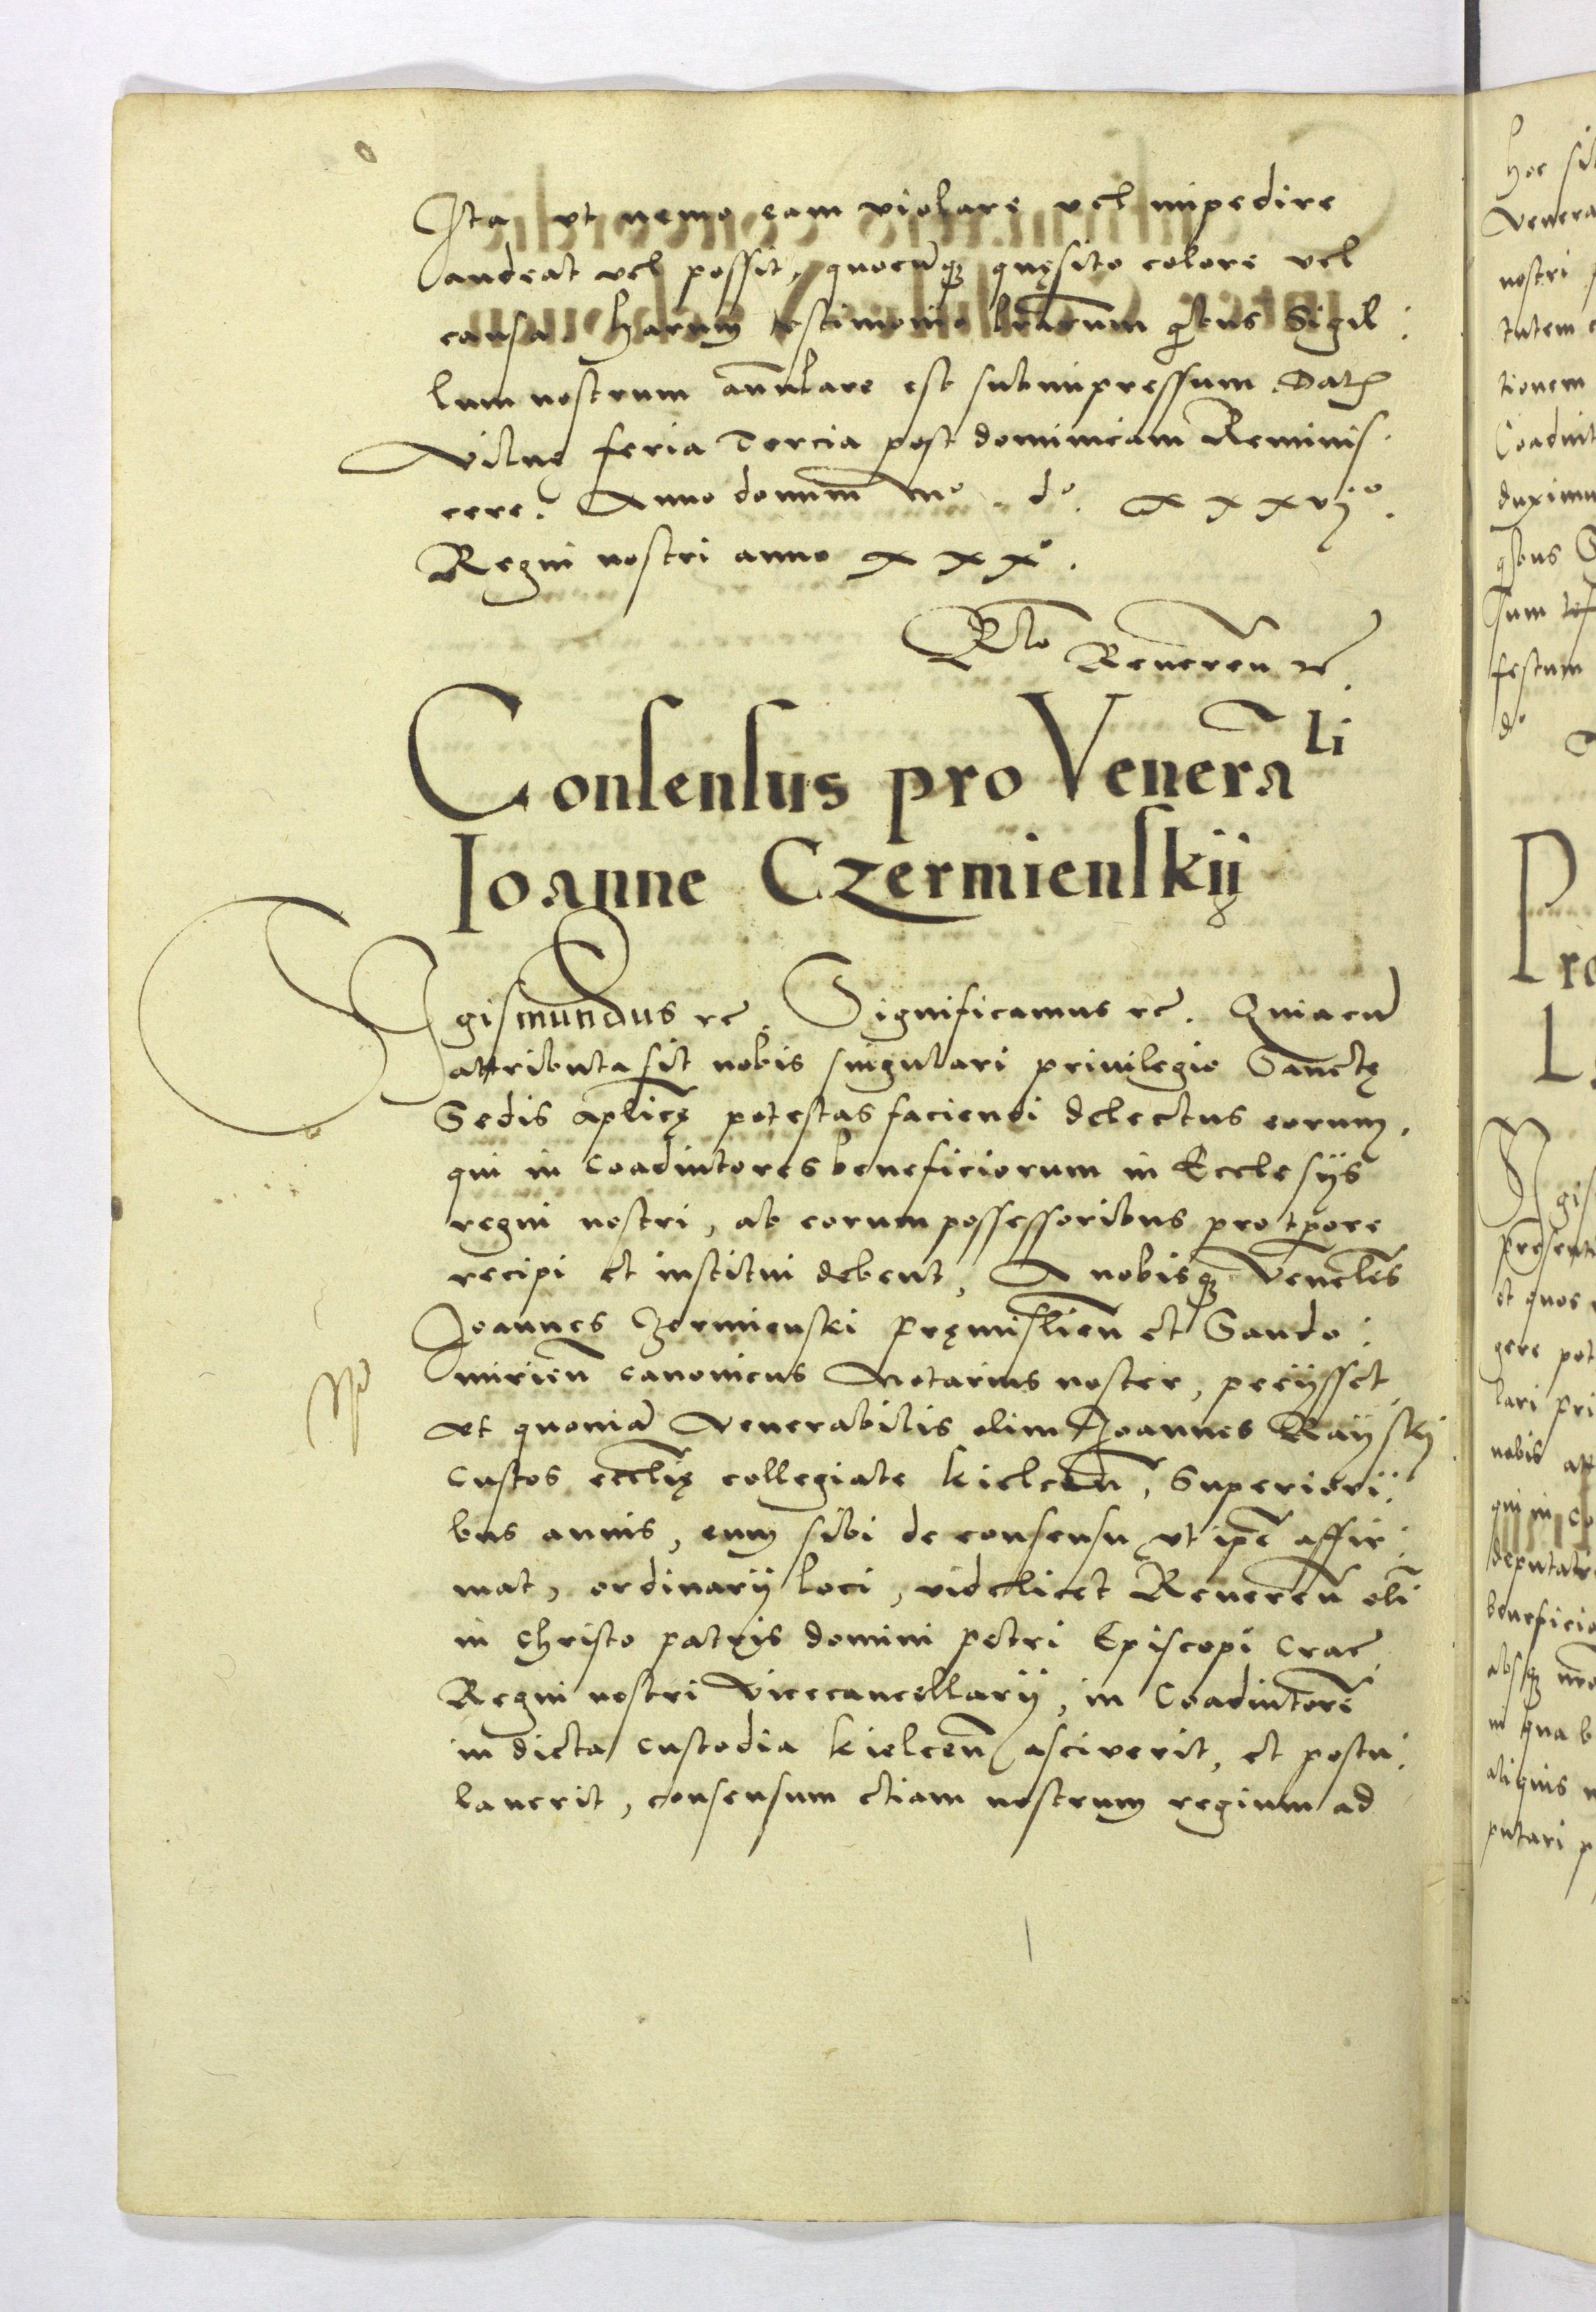 Ita vt nemo eam violare vel impedire
audeat vel possit, quocūq3 quęsito colore vel
causa. Harum testimonio lrārum q̄bus Sigil:
lum nostrum an̄ulare est subimpressum. Dat̄
Vilnę feria Tercia post dominicam Reminis.
cere. Anno domini Mº. dº. xxxvijº.
Regni nostri anno xxxº.
Rlō Reueren̄ rc̄.
Consensus pro Venerāli
Ioanne Czermienskij
Sigismundus rc̄. Significamus rc̄. Quia cū
attributa sit nobis singulari priuilegio Sanctę
Sedis aplicę̄ potestas faciendi delectus eorum,
qui in Coadiutores beneficiorum in Ecclesijs
regni nostri, ab eorum possessoribus pro tpore
recipi et institui debent, A nobisq3 Venēles
Joannes Czermienski pręmislien̄ et Sando:
mirien̄ canonicus Notarius noster, pecijsset,
vt quoniā Venerabilis olim Joannes Raijskij
Custos eccl̄ię collegiate Kielcen̄, Superiori:
bus annis, eum sibi de consensu vt ipē affir:
mat, ordinarij loci, videlicet Reueren̄ olī
in Christo patris domini petri Episcopi Crac̄.
Regni nostri Vicecancellarij, in Coadiutorē
in dicta custodia Kielcen̄ asciuerit, et postu:
lauerit, consensum etiam nostrum regium ad